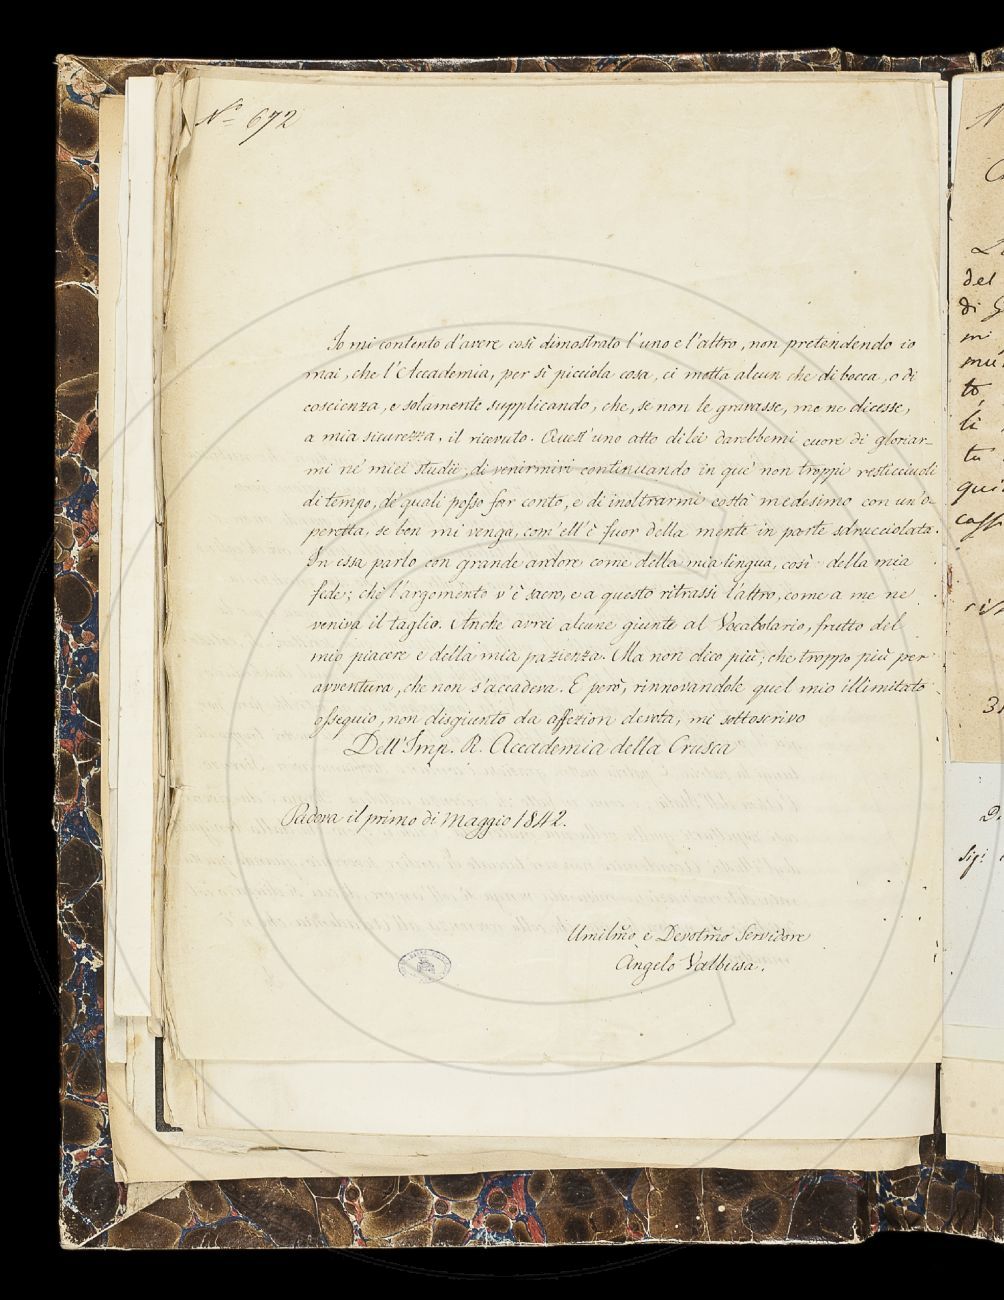 N.º 672
Io mi contento d'avere così dimostrato l'uno e l'altro, non pretendendo io
mai, che l'Accademia, per sì picciola cosa, ci metta alcun che di bocca, o di
coscienza, e solamente supplicando, che, se non le gravasse, me ne dicesse,
a mia sicurezza, il ricevuto. Quest'uno atto di lei darebbemi cuore di gloriar-
mi ne' miei studii, di venirmivi continuando in que' non troppi resticciuoli
di tempo, de' quali posso far conto, e di inoltrarmi costà medesimo con un'o-
peretta, se ben mi venga, com'ell'è fuor della mente in parte sdrucciolata.
In essa parlo con grande ardore come della mia lingua, così della mia
fede; chè l'argomento v'è sacro, e a questo ritrassi l'altro, come a me ne
veniva il taglio. Anche avrei alcune giunte al Vocabolario, frutto del
mio piacere e della mia pazienza. Ma non dico più; che troppo più per
avventura, che non s'accadeva. E però, rinnovandole quel mio illimitato
ossequio, non disgiunto da affezion devota, mi sottoscrivo
Dell'Imp. R. Accademia della Crusca
Padova il primo di Maggio 1842.
Umilm̃o e Devotm̃o Servidore
Angelo Valbusa.
del
di
mi
to,
li
tu
qui